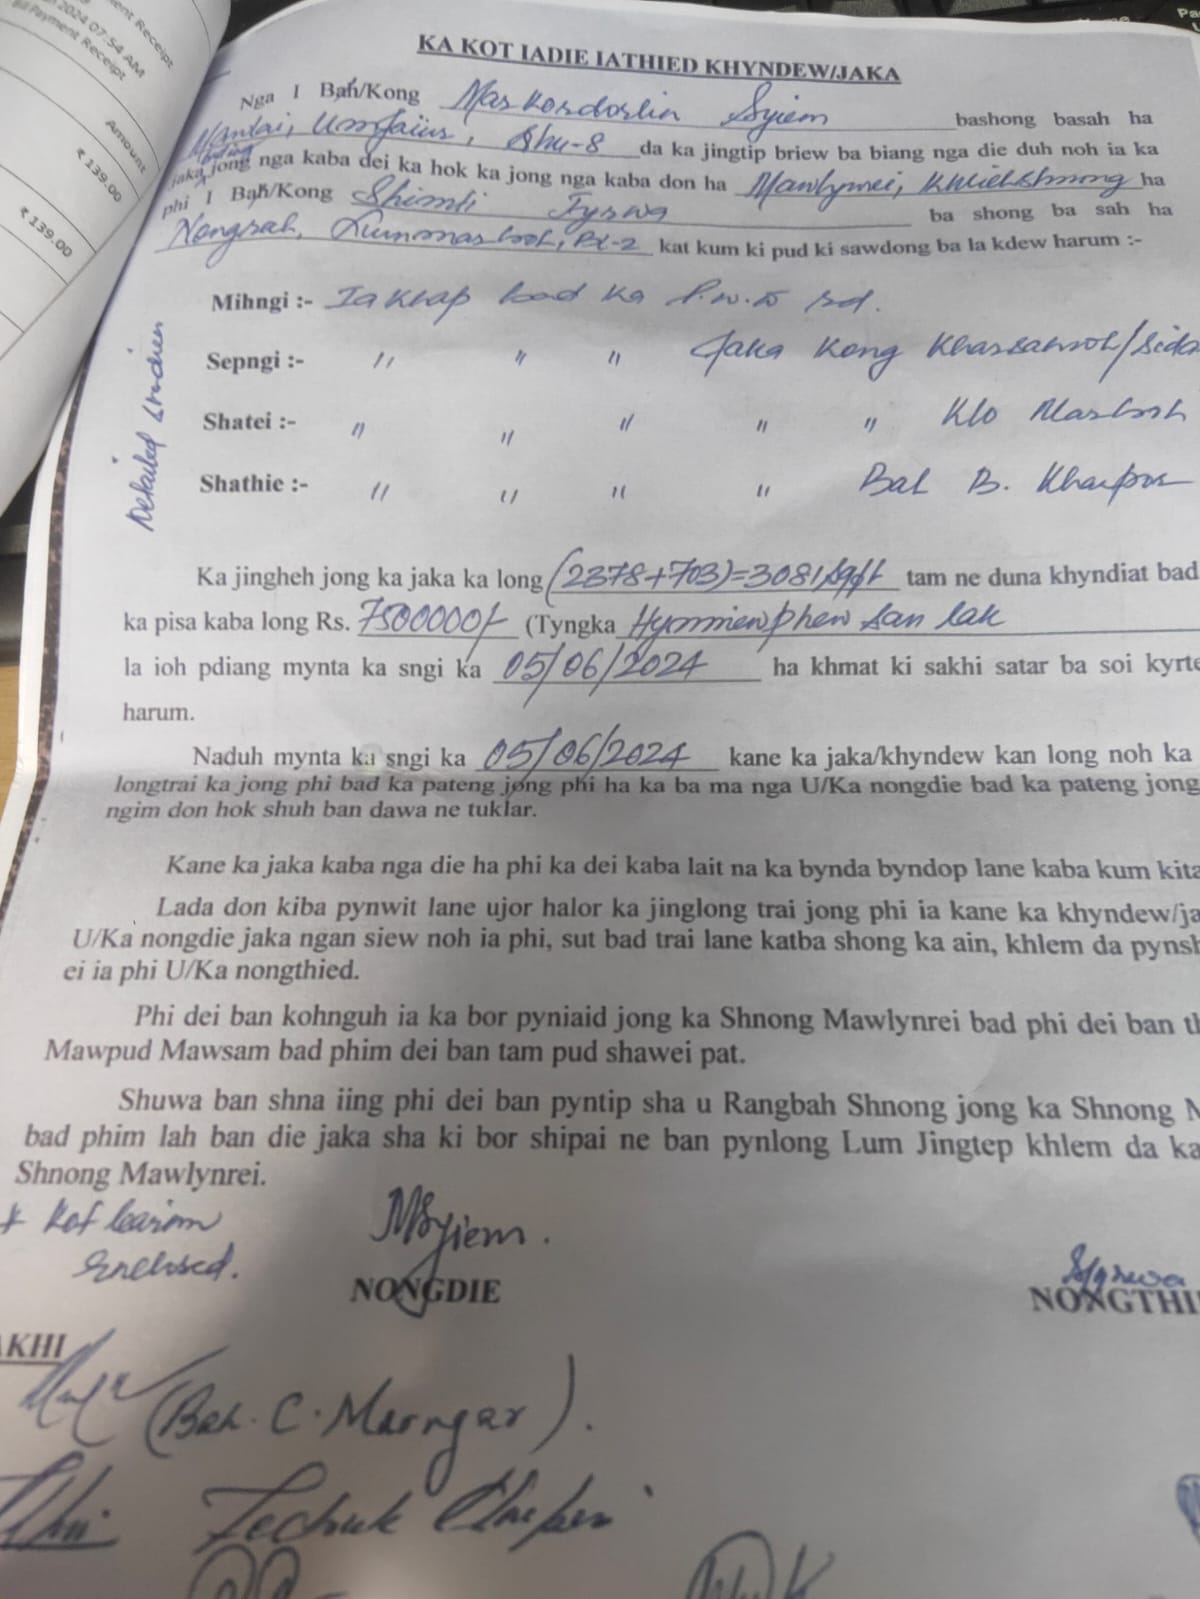 ent Receipt
2024 07:54 AM
Bill Payment Receipt
Amount
₹ 139.00
₹ 139.00
KA KOT IADIE IATHIED KHYNDEW/JAKA
Nga I Bah/Kong Maskordorlin Syiem bashong basah ha
Shu-8 da ka jingtip briew ba biang nga die duh noh ia ka
jaka jong nga kaba dei ka hok ka jong nga kaba don ha ha
phi I Bah/Kong Shimti Tyrwa ba shong ba sah ha
Nongrah, kat kum ki pud ki sawdong ba la kdew harum :-
Mihngi :- Ia khap bad ka P.W.D rd.
Sepngi :- " " " Jaka Kong
Shatei :- " " " " " Klo
Shathie :- " " " " Bah B.
Detailed
Ka jingheh jong ka jaka ka long (2378+703)=3081 sqft tam ne duna khyndiat bad
ka pisa kaba long Rs. 7500000/- (Tyngka Hynniewphew san lak
la ioh pdiang mynta ka sngi ka 05/06/2024 ha khmat ki sakhi satar ba soi kyrte
harum.
Naduh mynta ka sngi ka 05/06/2024 kane ka jaka/khyndew kan long noh ka
longtrai ka jong phi bad ka pateng jong phi ha ka ba ma nga U/Ka nongdie bad ka pateng jong
ngim don hok shuh ban dawa ne tuklar.
Kane ka jaka kaba nga die ha phi ka dei kaba lait na ka bynda byndop lane kaba kum kita
Lada don kiba pynwit lane ujor halor ka jinglong trai jong phi ia kane ka khyndew/ja
U/Ka nongdie jaka ngan siew noh ia phi, sut bad trai lane katba shong ka ain, khlem da pynsh
ei ia phi U/Ka nongthied.
Phi dei ban kohnguh ia ka bor pyniaid jong ka Shnong Mawlynrei bad phi dei ban th
Mawpud Mawsam bad phim dei ban tam pud shawei pat.
Shuwa ban shna iing phi dei ban pyntip sha u Rangbah Shnong jong ka Shnong M
bad phim lah ban die jaka sha ki bor shipai ne ban pynlong Lum Jingtep khlem da ka
Shnong Mawlynrei.
Enclosed.
MSyiem.
NONGDIE
Styrwa
NONGTHI
AKHI
(Bah. C. Marngar).